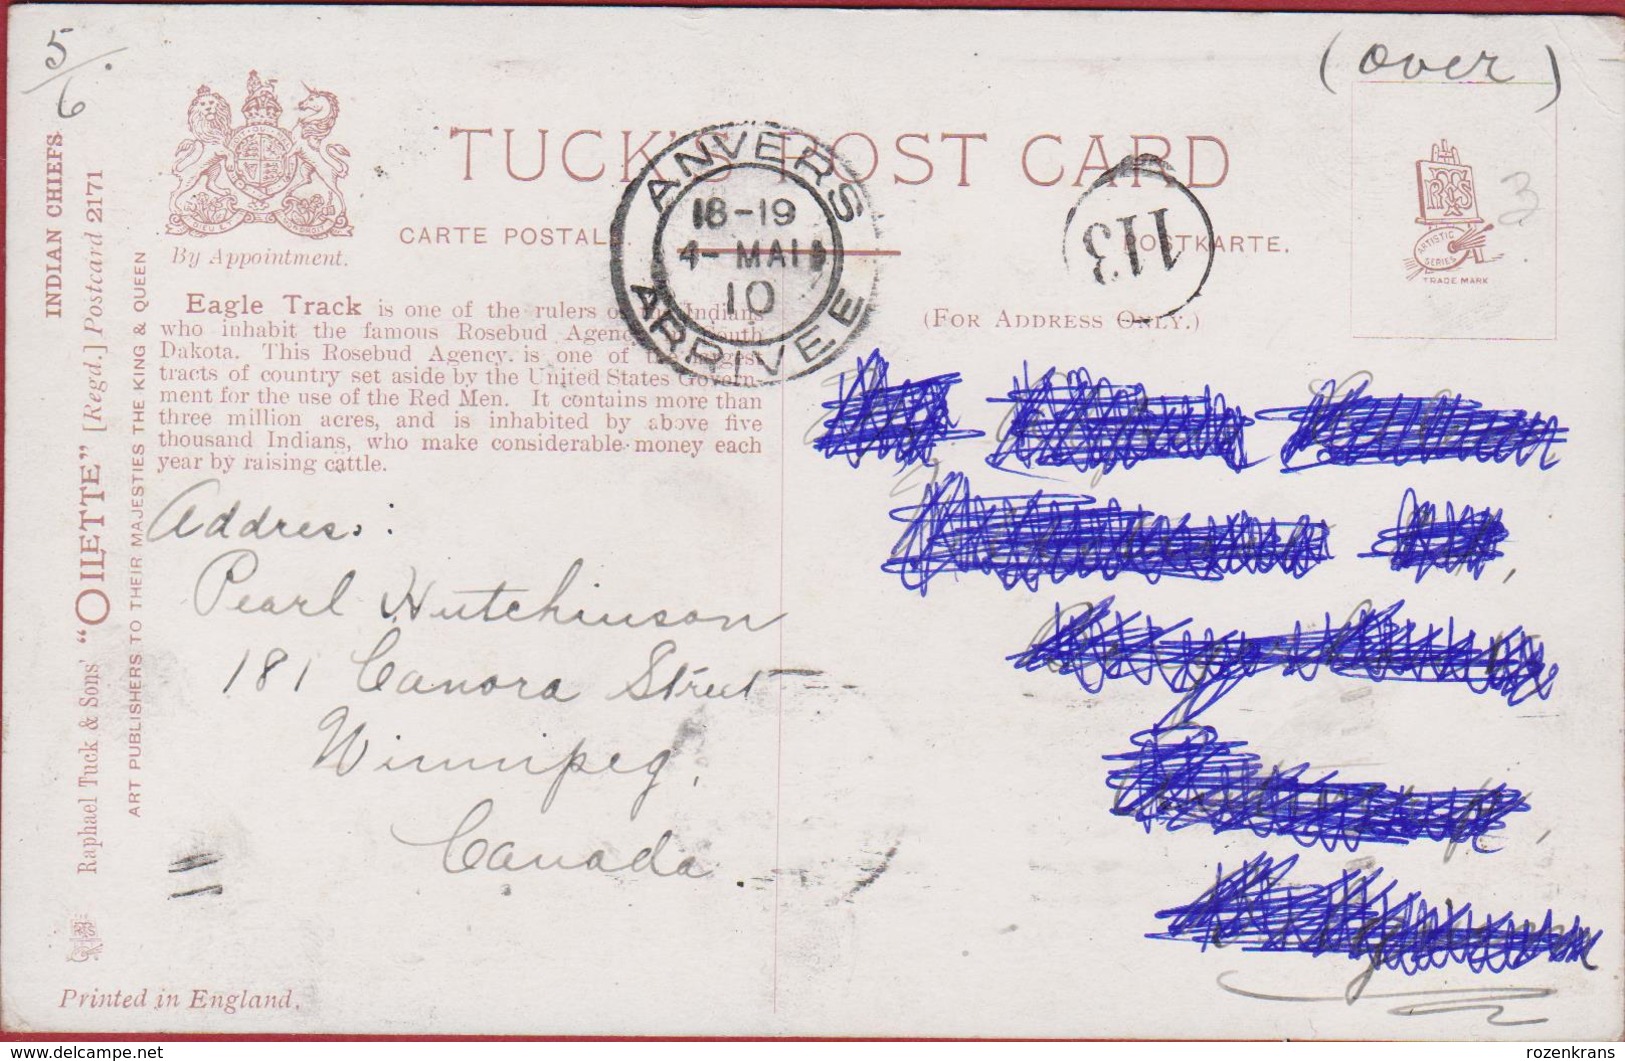 5/6
(over)
TUCK'S POST CARD
CARTE POSTALE.
POSTKARTE.
By Appointment.
(FOR ADDRESS ONLY.)
ANVERS
18-19
4- MAI
10
ARRIVEE
113
3
ARTISTIC
SERIES
TRADE MARK
Eagle Track is one of the rulers Indians
who inhabit the famous Rosebud Agency South
Dakota. This Rosebud Agency is one of the largest
tracts of country set aside by the United States Govern-
ment for the use of the Red Men. It contains more than
three million acres, and is inhabited by above five
thousand Indians, who make considerable money each
year by raising cattle.
Address:
Pearl Hutchinson
181 Canora Street
Winnipeg,
Canada.
INDIAN CHIEFS
Raphael Tuck & Sons' "OILETTE" [Regd.] Postcard 2171
ART PUBLISHERS TO THEIR MAJESTIES THE KING & QUEEN
Printed in England.
delcampe.net
rozenkrans